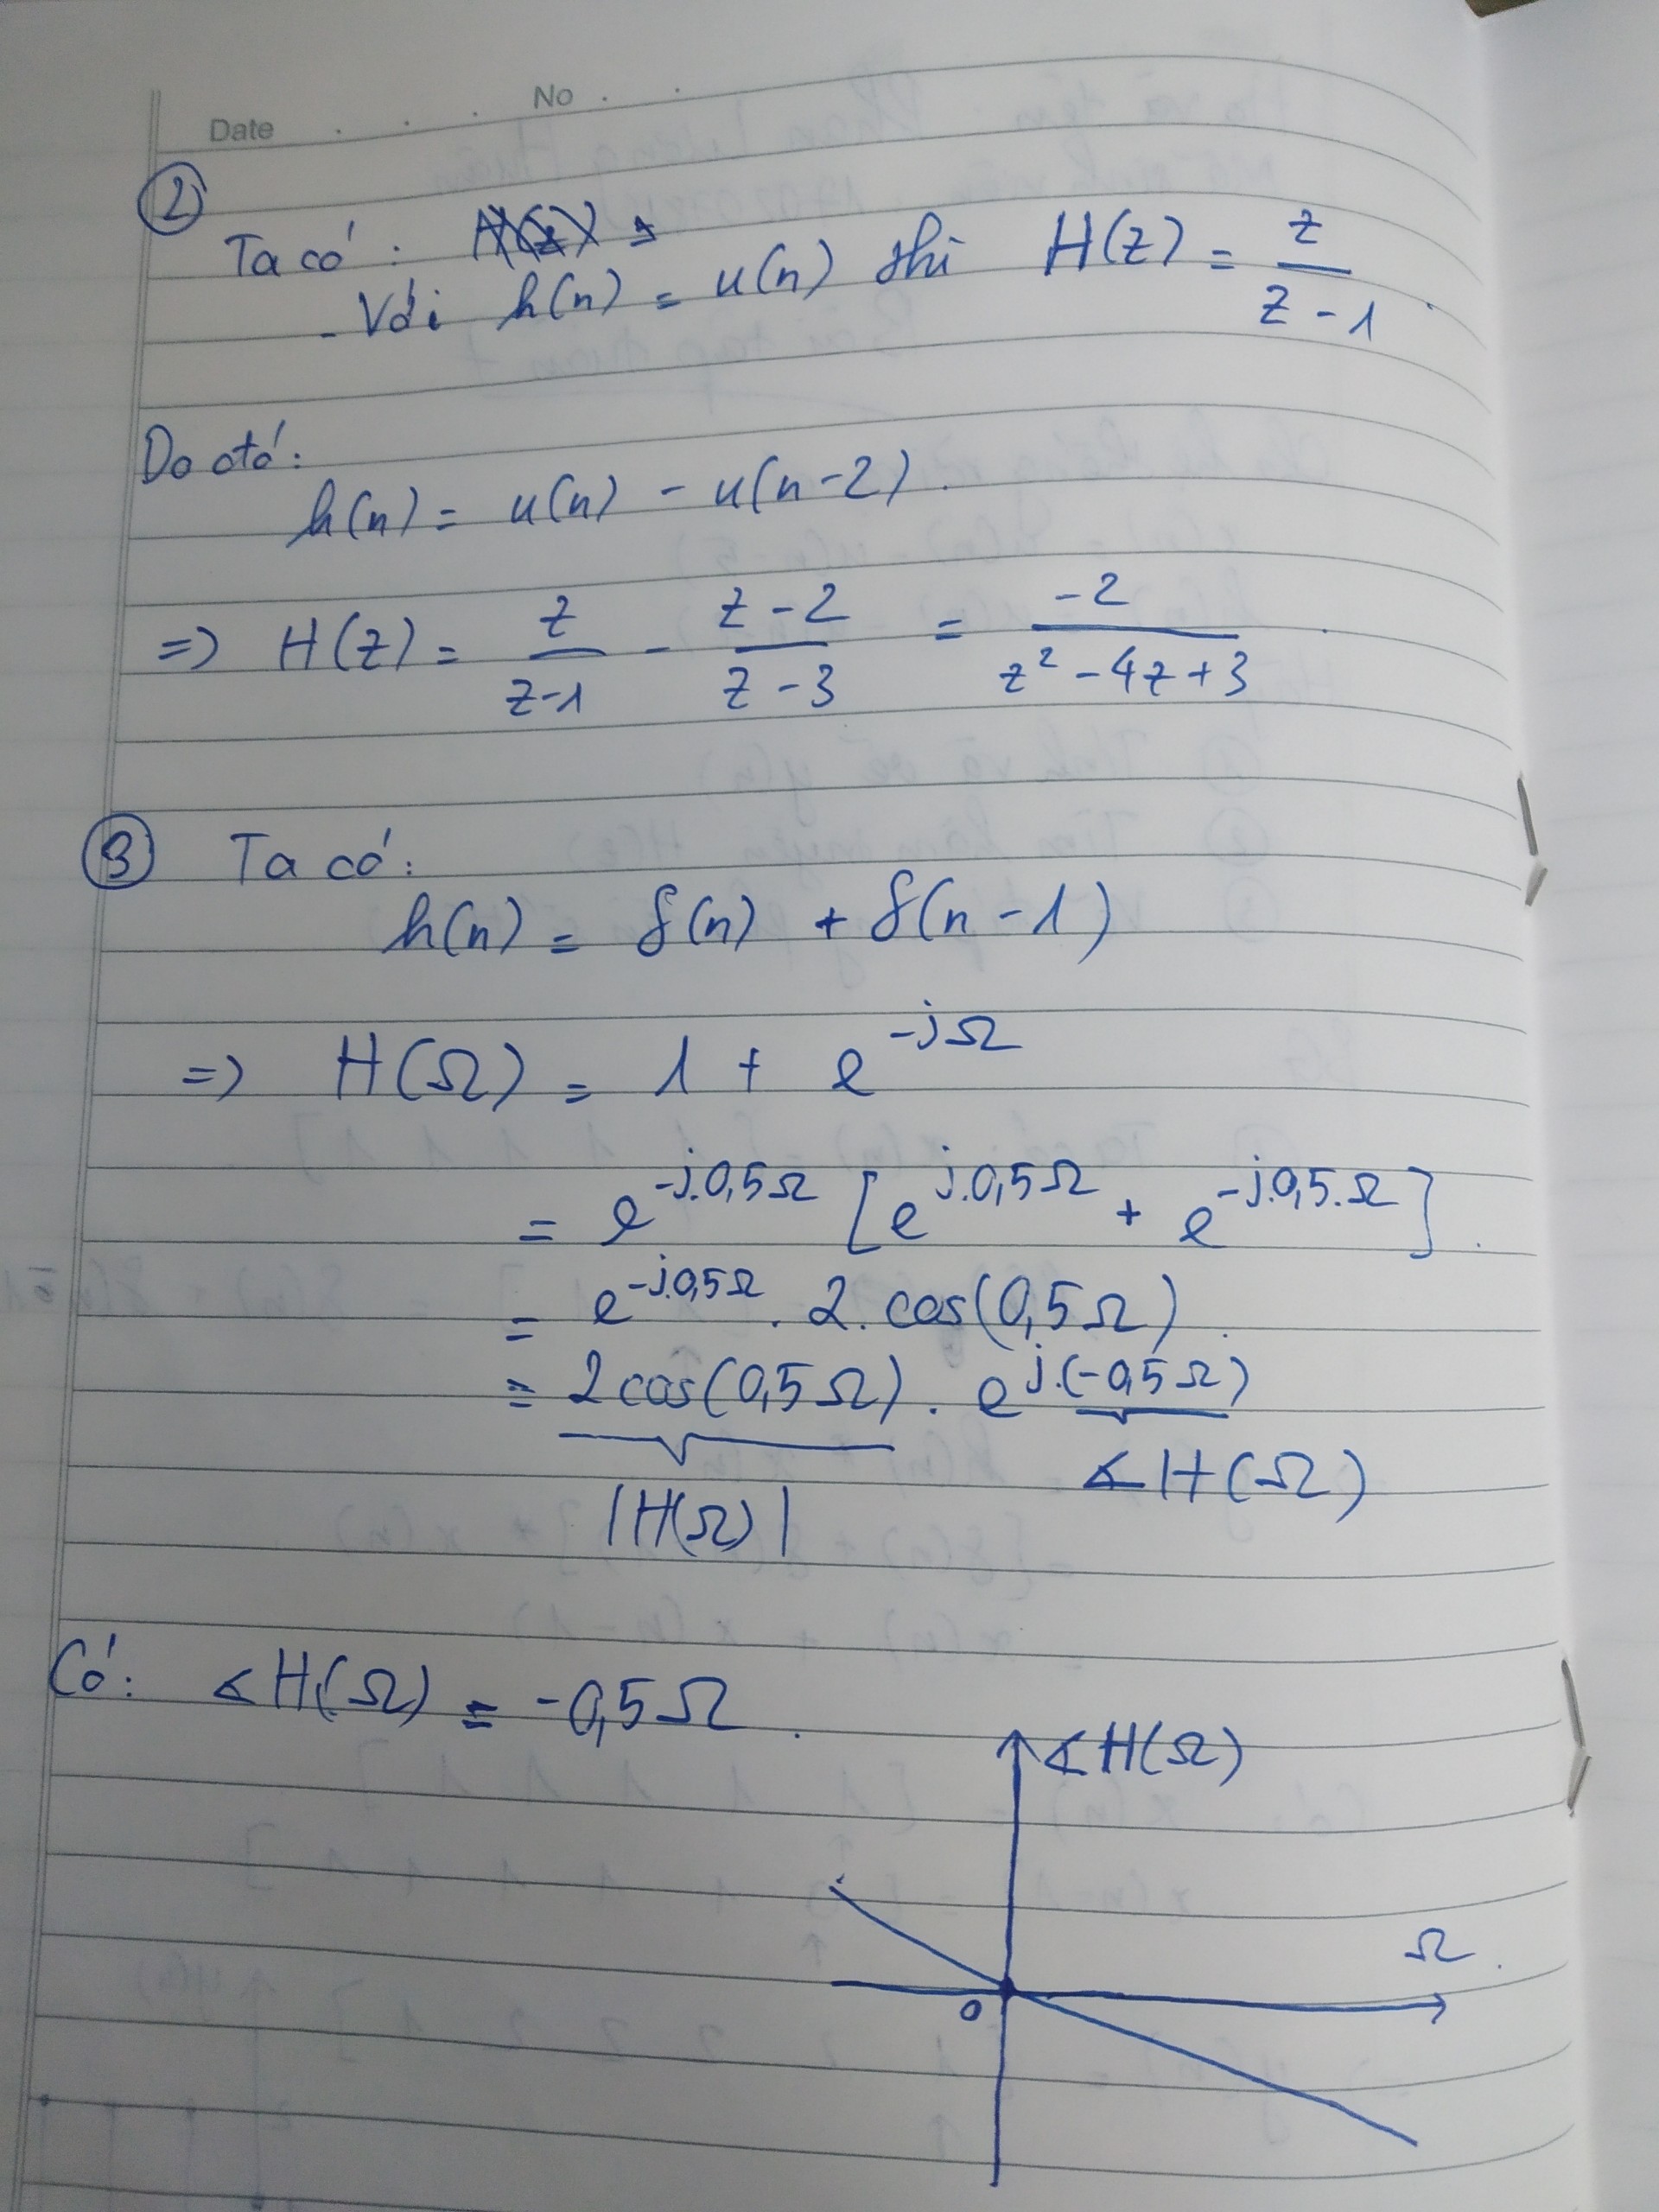 Date . . . No . .
②
Ta có:
- Với h(n) = u(n) thì H(z) = z / (z - 1)
Do đó:
h(n) = u(n) - u(n-2).
=> H(z) = z / (z-1) - (z-2) / (z-3) = -2 / (z² - 4z + 3)
③ Ta có:
h(n) = δ(n) + δ(n-1)
=> H(Ω) = 1 + e^(-jΩ)
= e^(-j.0,5Ω) [e^(j.0,5Ω) + e^(-j.0,5.Ω)].
= e^(-j.0,5Ω) . 2.cos(0,5Ω).
= 2cos(0,5Ω) . e^(j.(-0,5Ω))
|H(Ω)| ∢H(Ω)
Có: ∢H(Ω) = -0,5Ω.
∢H(Ω)
Ω
0